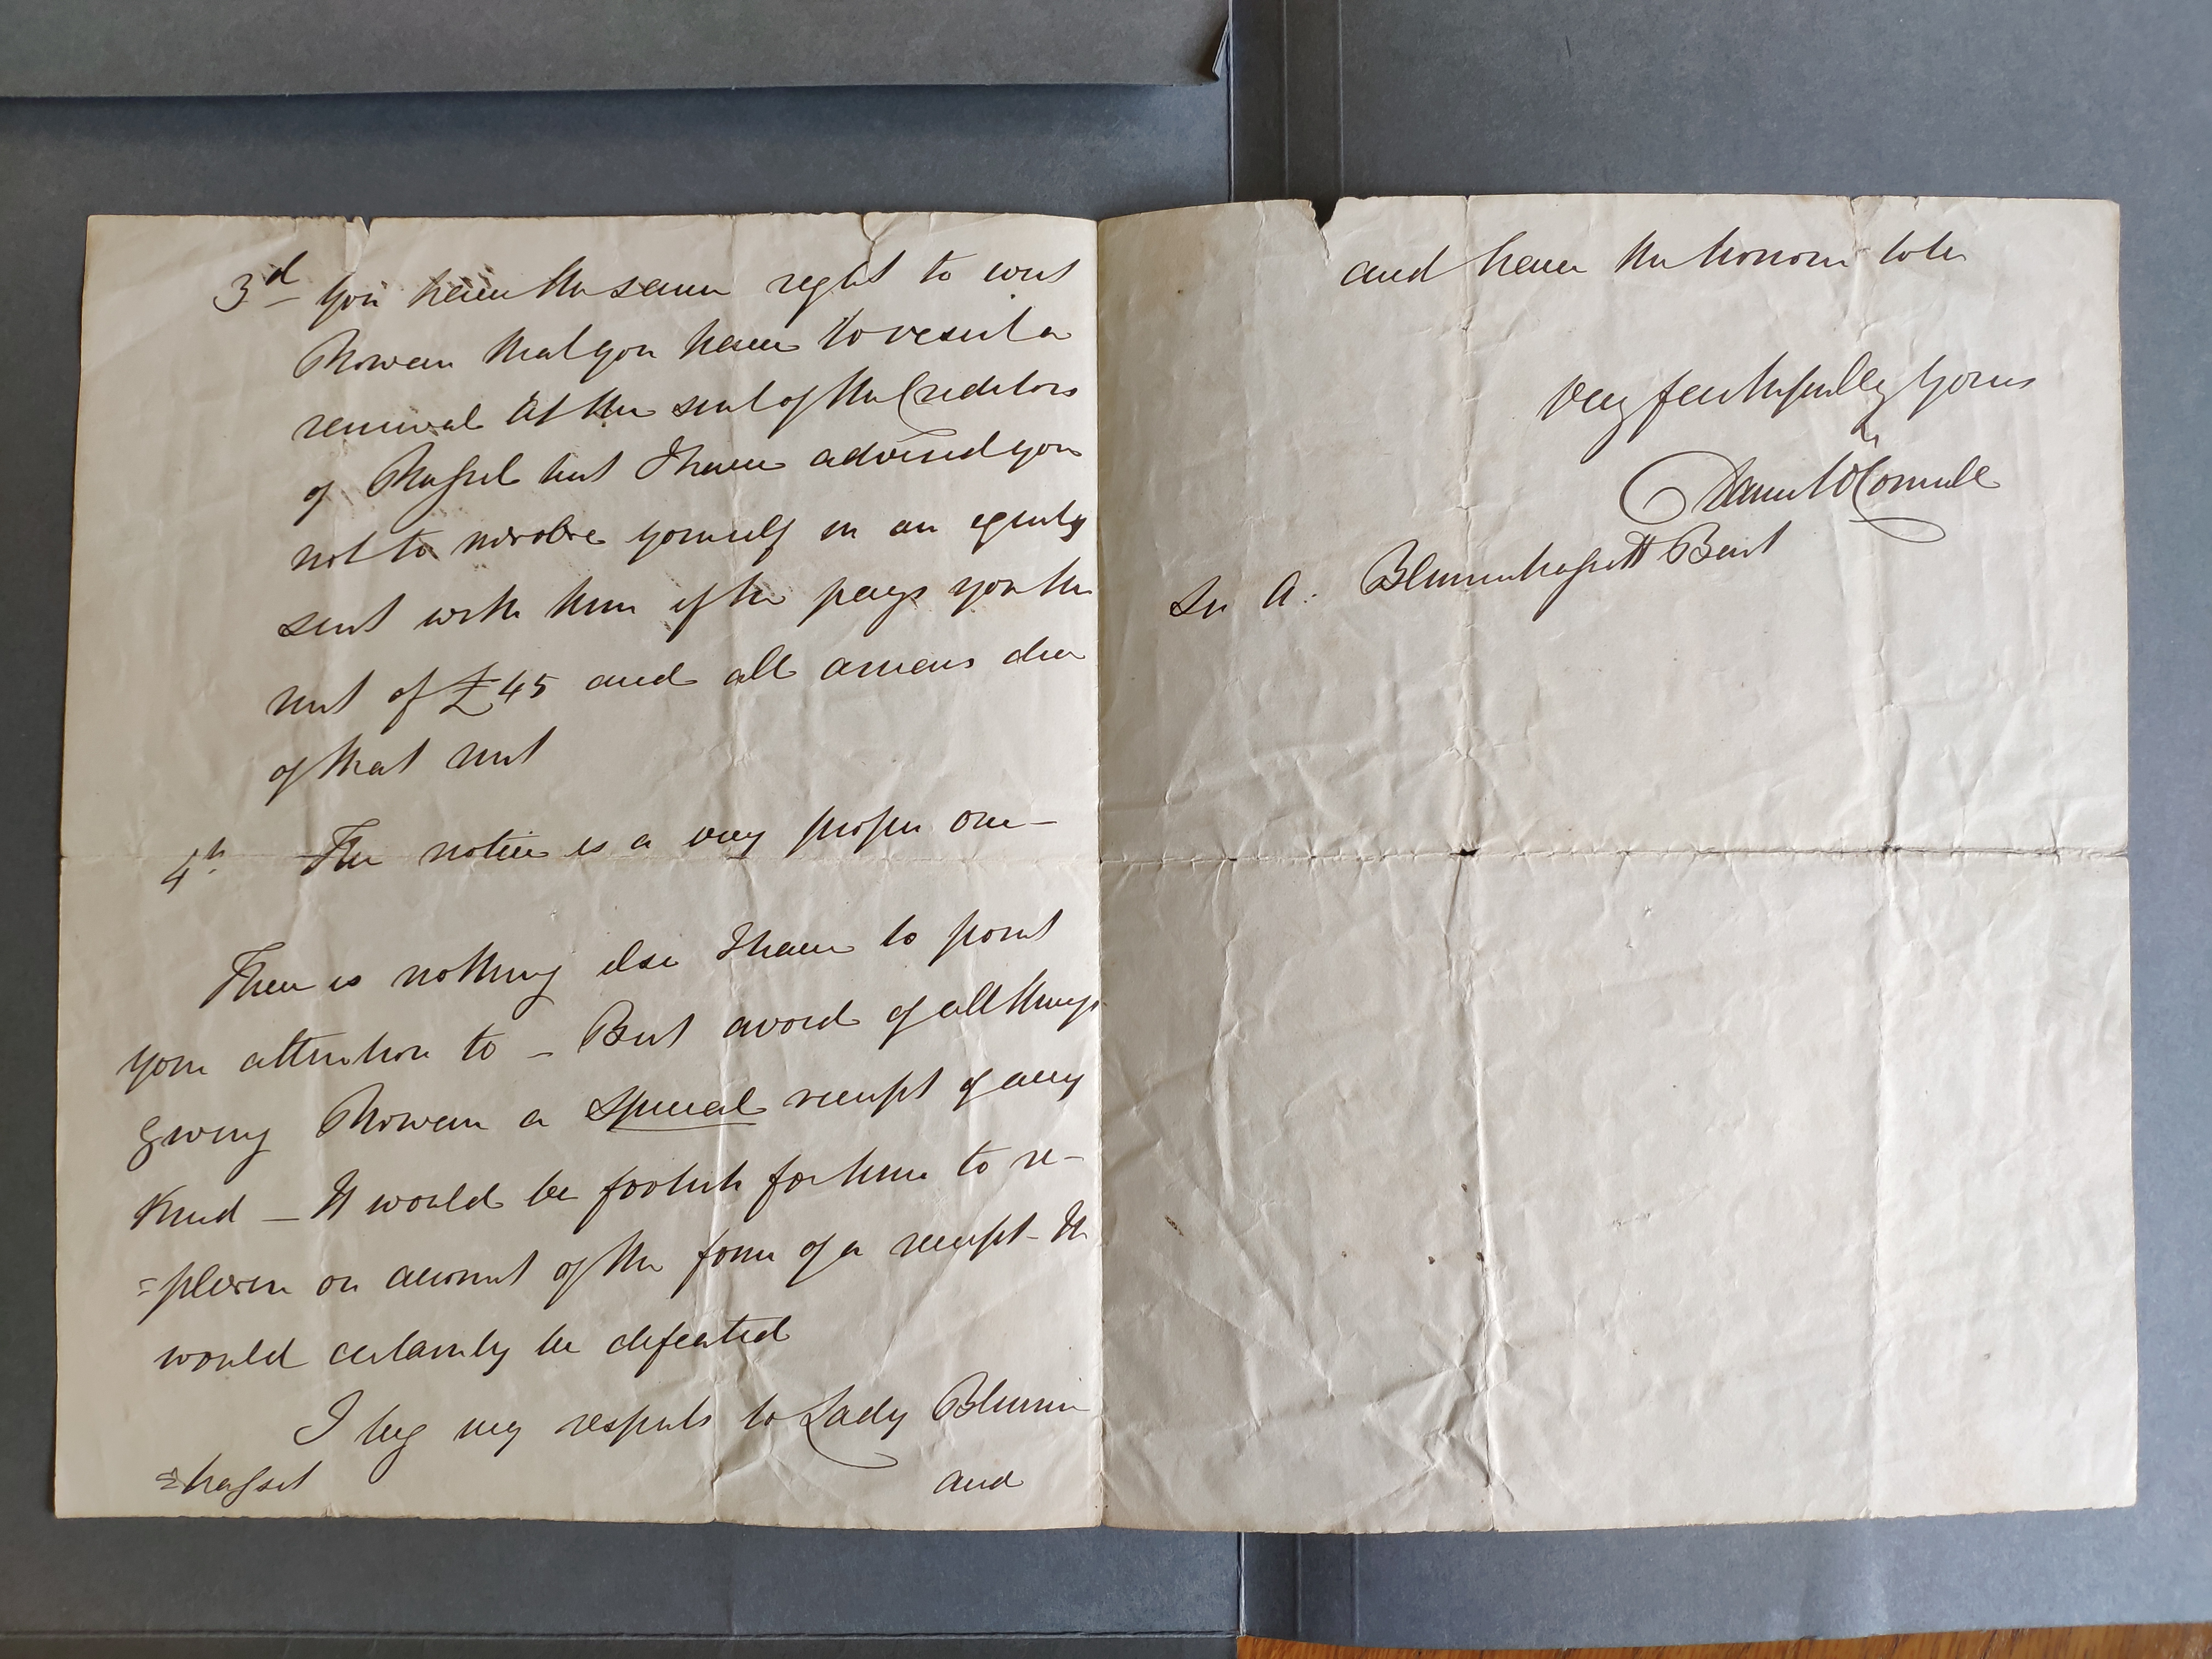 3d You have the same right to evict
Rowan that you have to resist a
renewal at the suit of the Creditors
of Massel but I have advised you
not to involve yourself in an equity
suit with him if he pays you the
rent of £45 and all arrears due
of that rent
4th The notice is a very proper one —
There is nothing else I have to point
your attention to — But avoid of all things
giving Rowan a special receipt of any
kind — It would be foolish for him to re-
=plevin on account of the form of a receipt — He
would certainly be defeated
I beg my respects to Lady Blenner
=hasset
and
and have the honour to be
Very faithfully Yours
Daniel O'Connell
Sir A. Blennerhassett Bart